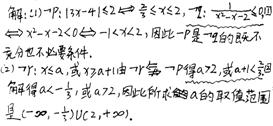 解:(1)¬P:|3x-4|≤2⇔2/3≤x≤2, ¬q: 1/(x²-x-2)<0
⇔x²-x-2<0⇔-1<x<2,因此¬P是¬q的既不
充分也不必要条件.
(2)¬r:x≤a,或x≥a+1由¬r ¬P得a≥2,或a+1≤2/3
解得a≤-1/3,或a≥2,因此所求a的取值范围
是(-∞,-1/3)∪(2,+∞).